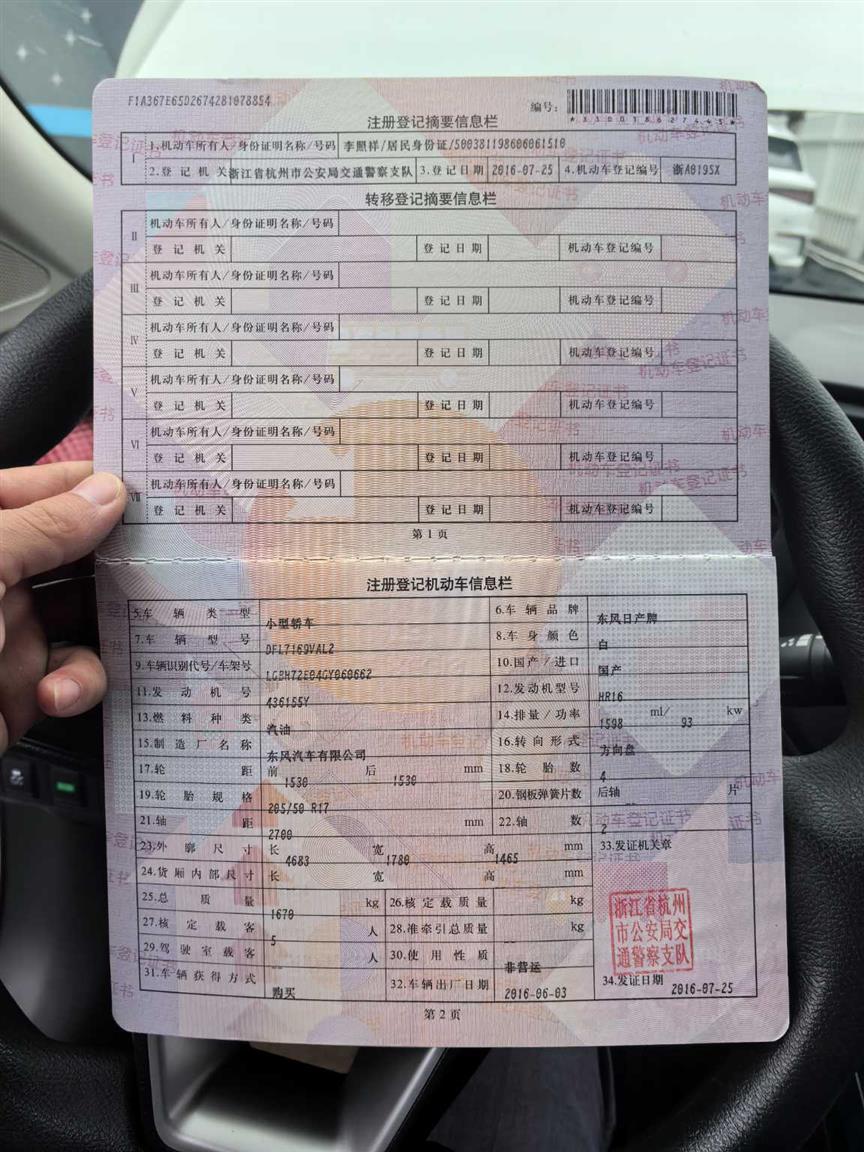 F1A367E65D2674281078854
编号：
注册登记摘要信息栏
I 1.机动车所有人/身份证明名称/号码 李照祥/居民身份证/500381198606061510
2.登记机关 浙江省杭州市公安局交通警察支队 3.登记日期 2016-07-25 4.机动车登记编号 浙A0195X
转移登记摘要信息栏
II 机动车所有人/身份证明名称/号码
登记机关 登记日期 机动车登记编号
III 机动车所有人/身份证明名称/号码
登记机关 登记日期 机动车登记编号
IV 机动车所有人/身份证明名称/号码
登记机关 登记日期 机动车登记编号
V 机动车所有人/身份证明名称/号码
登记机关 登记日期 机动车登记编号
VI 机动车所有人/身份证明名称/号码
登记机关 登记日期 机动车登记编号
VII 机动车所有人/身份证明名称/号码
登记机关 登记日期 机动车登记编号
第1页
注册登记机动车信息栏
5.车辆类型 小型轿车 6.车辆品牌 东风日产牌
7.车辆型号 DFL7169VAL2 8.车身颜色 白
9.车辆识别代号/车架号 LGBH72E04GY060662 10.国产/进口 国产
11.发动机号 436155Y 12.发动机型号 HR16
13.燃料种类 汽油 14.排量/功率 1598 ml/ 93 kw
15.制造厂名称 东风汽车有限公司 16.转向形式 方向盘
17.轮距 前 1530 后 1530 mm 18.轮胎数 4
19.轮胎规格 205/50 R17 20.钢板弹簧片数 后轴 -- 片
21.轴距 2700 mm 22.轴数 2
23.外廓尺寸 长 4683 宽 1780 高 1465 mm 33.发证机关章
24.货厢内部尺寸 长 宽 高 mm
25.总质量 1670 kg 26.核定载质量 kg
27.核定载客 5 人 28.准牵引总质量 -- kg
29.驾驶室载客 -- 人 30.使用性质 非营运
31.车辆获得方式 购买 32.车辆出厂日期 2016-06-03
浙江省杭州
市公安局交
通警察支队
34.发证日期 2016-07-25
第2页